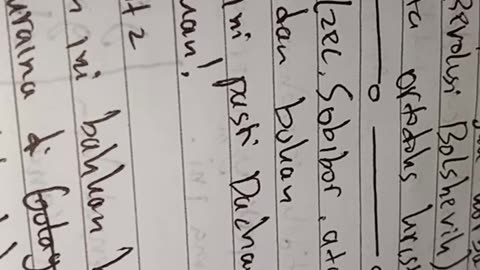 Revolusi Bolshevik)
ta ortodoks kris
lzec, Sobibor, ata
dan bukan
ini pasti Dachau
uan!
tz
n ini bahkan
uraina di